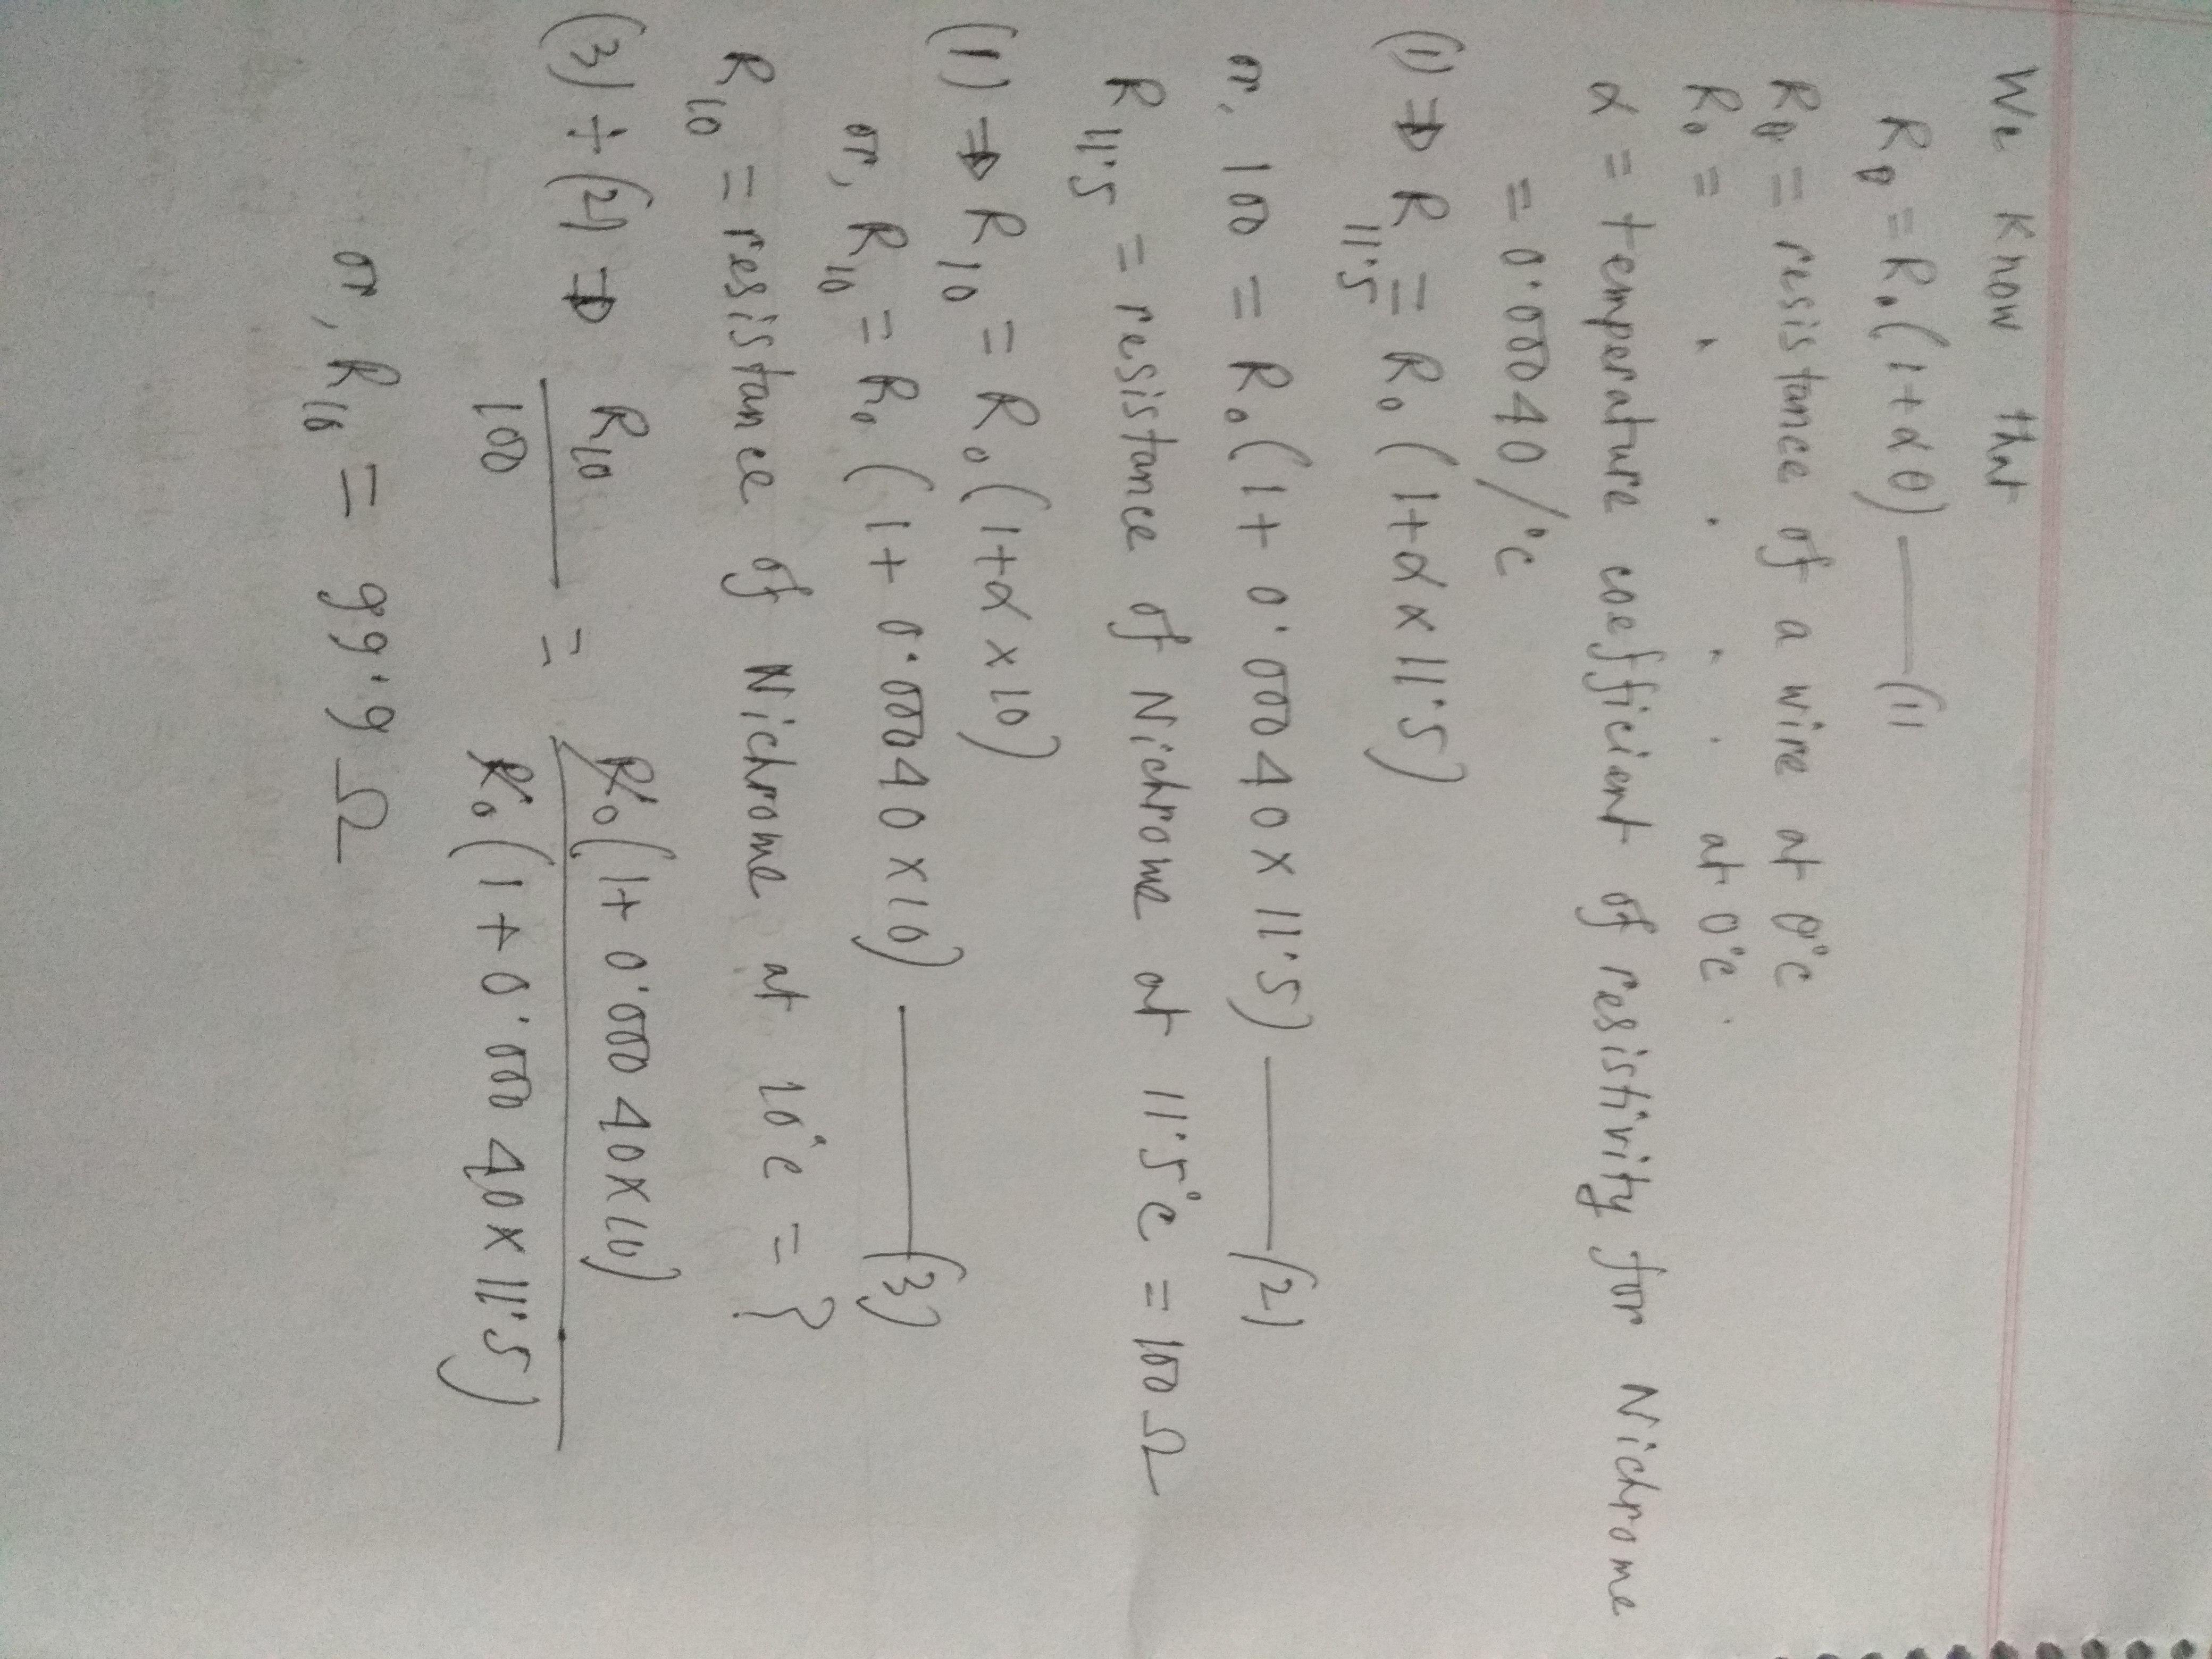 We know that
Rθ = R₀(1+αθ) —— (1)
Rθ = resistance of a wire at θ°C
R₀ = " " " " at 0°C.
α = temperature coefficient of resistivity for Nichrome
= 0.00040/°C
(1) ⇒ R11.5 = R₀(1+α×11.5)
or, 100 = R₀(1+0.00040×11.5) —— (2)
R11.5 = resistance of Nichrome at 11.5°C = 100Ω
(1) ⇒ R10 = R₀(1+α×10)
or, R10 = R₀(1+0.00040×10) —— (3)
R10 = resistance of Nichrome at 10°C = ?
(3) ÷ (2) ⇒ R10/100 = R₀(1+0.00040×10)/R₀(1+0.00040×11.5)
or, R10 = 99.9Ω